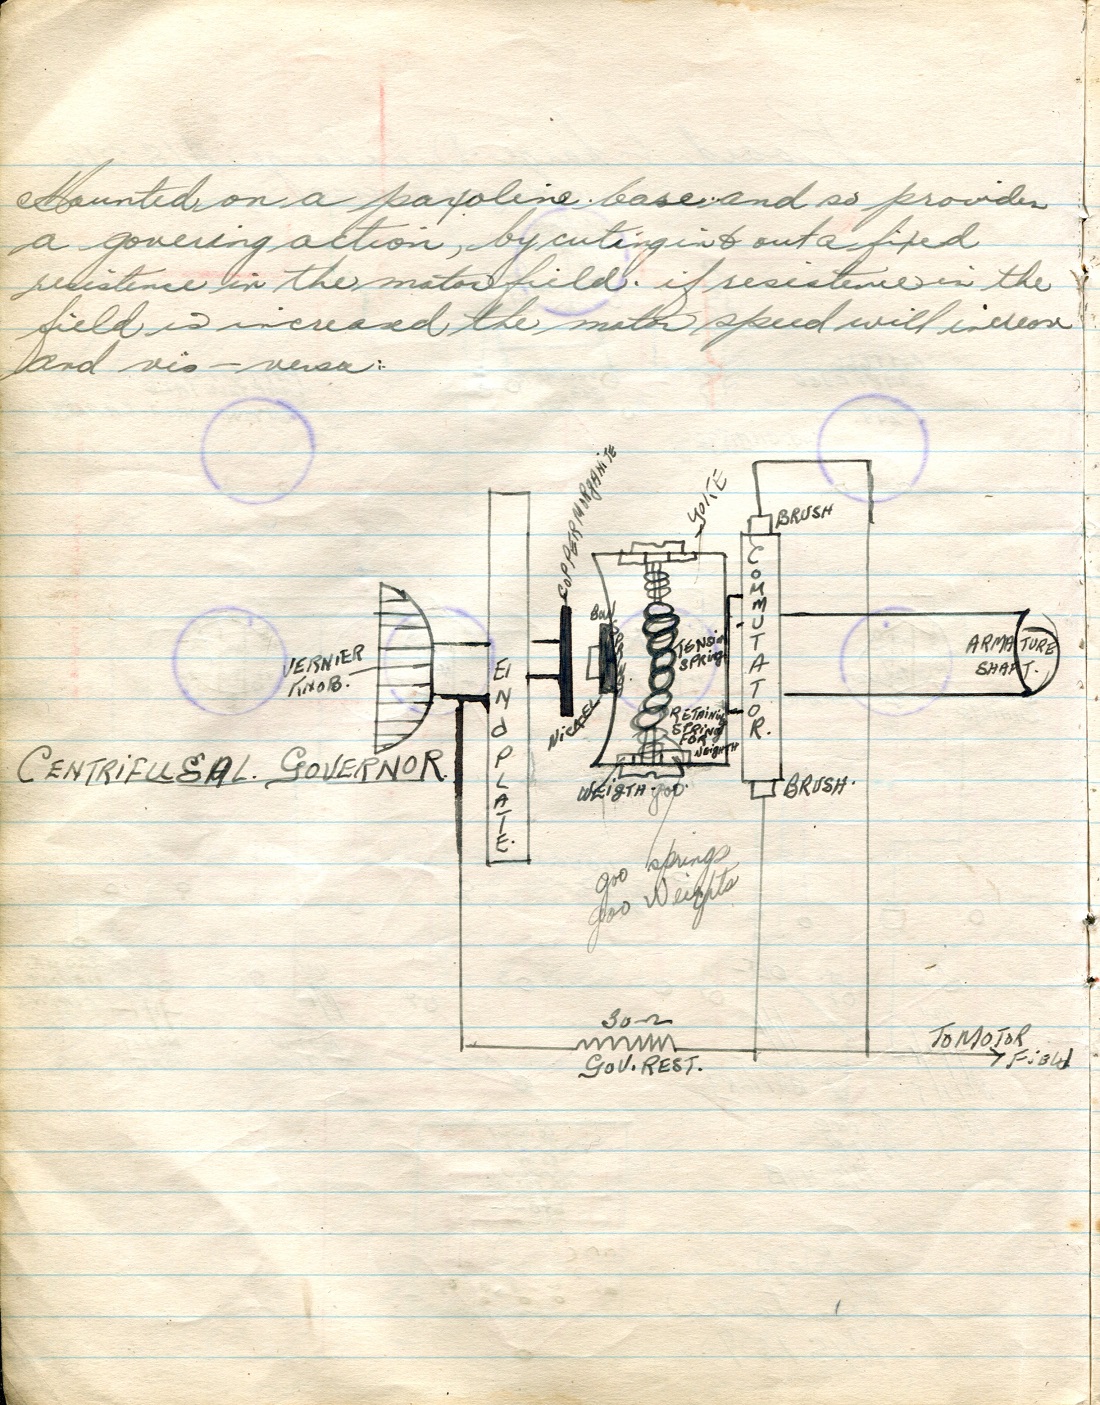 Mounted on a paxoline base and so provides
a govering action, by cuting in & out a fixed
resistence in the motor field. if resistence in the
field is increased the motor speed will increase
and vis-versa:
COPPER MORGANITE
YOKE
BRUSH
COMMUTATOR.
TENSION SPRING
ARMATURE
SHAFT.
VERNIER
KNOB.
END PLATE.
NICKEL
RETAINING
SPRING
FOR
WEIGTH
CENTRIFUGAL. GOVERNOR.
WEIGTH.
BRUSH.
goo springs
goo Weights
30 Ω
GOV. REST.
TO MOTOR
FiELd